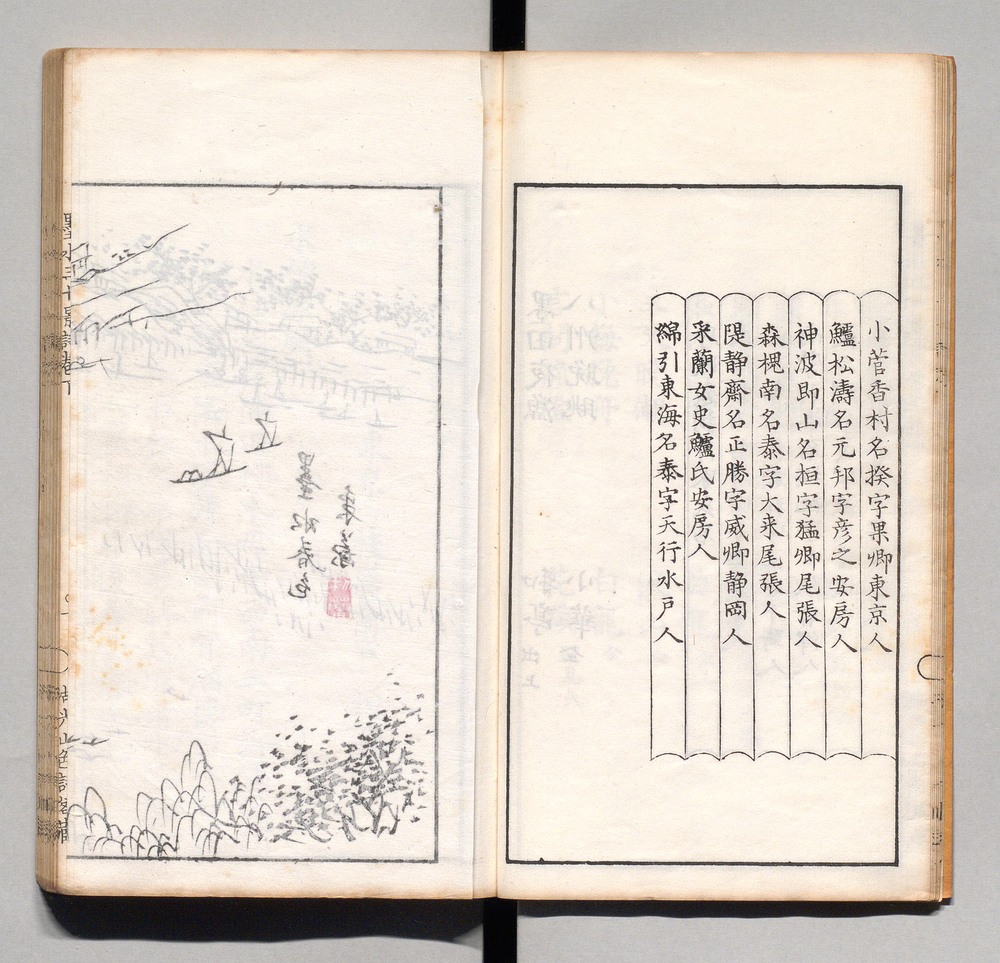 小菅香村名揆字果卿東京人
鱸松濤名元邦字彦之安房人
神波即山名桓字猛卿尾張人
森槐南名泰字大来尾張人
隄静齋名正勝字威卿静岡人
采蘭女史鱸氏安房人
綿引東海名泰字天行水戸人
墨水春色